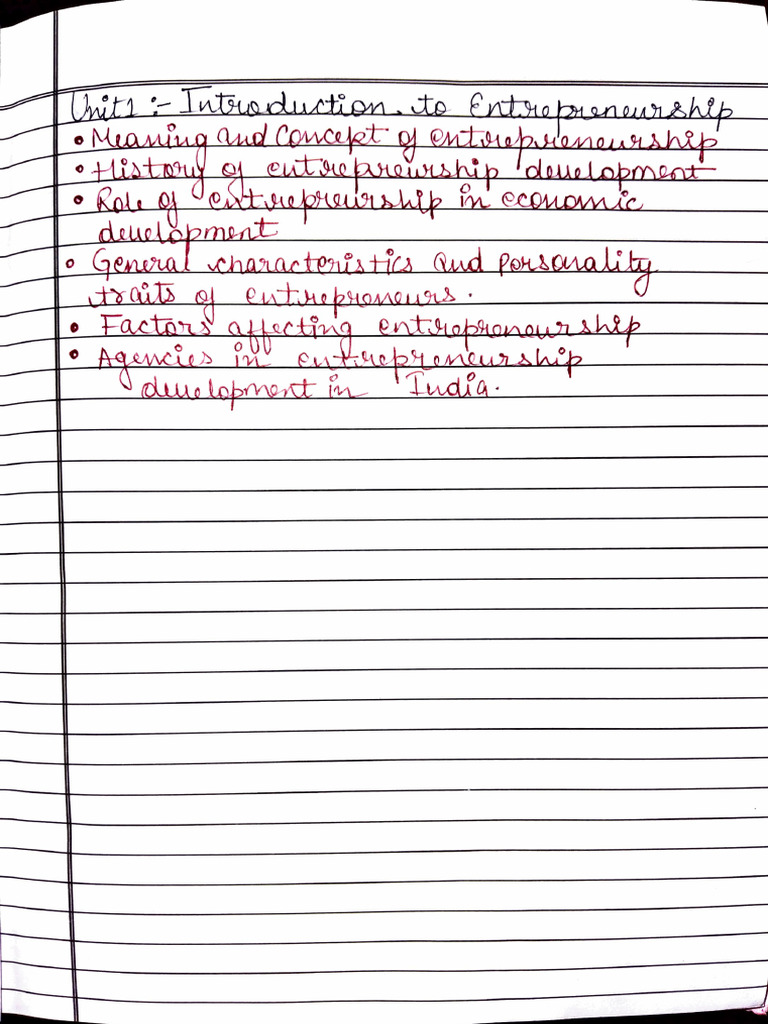 Unit 1 :- Introduction to Entrepreneurship
• Meaning and Concept of entrepreneurship
• History of entrepreurship development
• Role of entrepreurship in economic
development
• General characteristics and personality
traits of entrepreneurs.
• Factors affecting entrepreneurship
• Agencies in entrepreneurship
development in India.